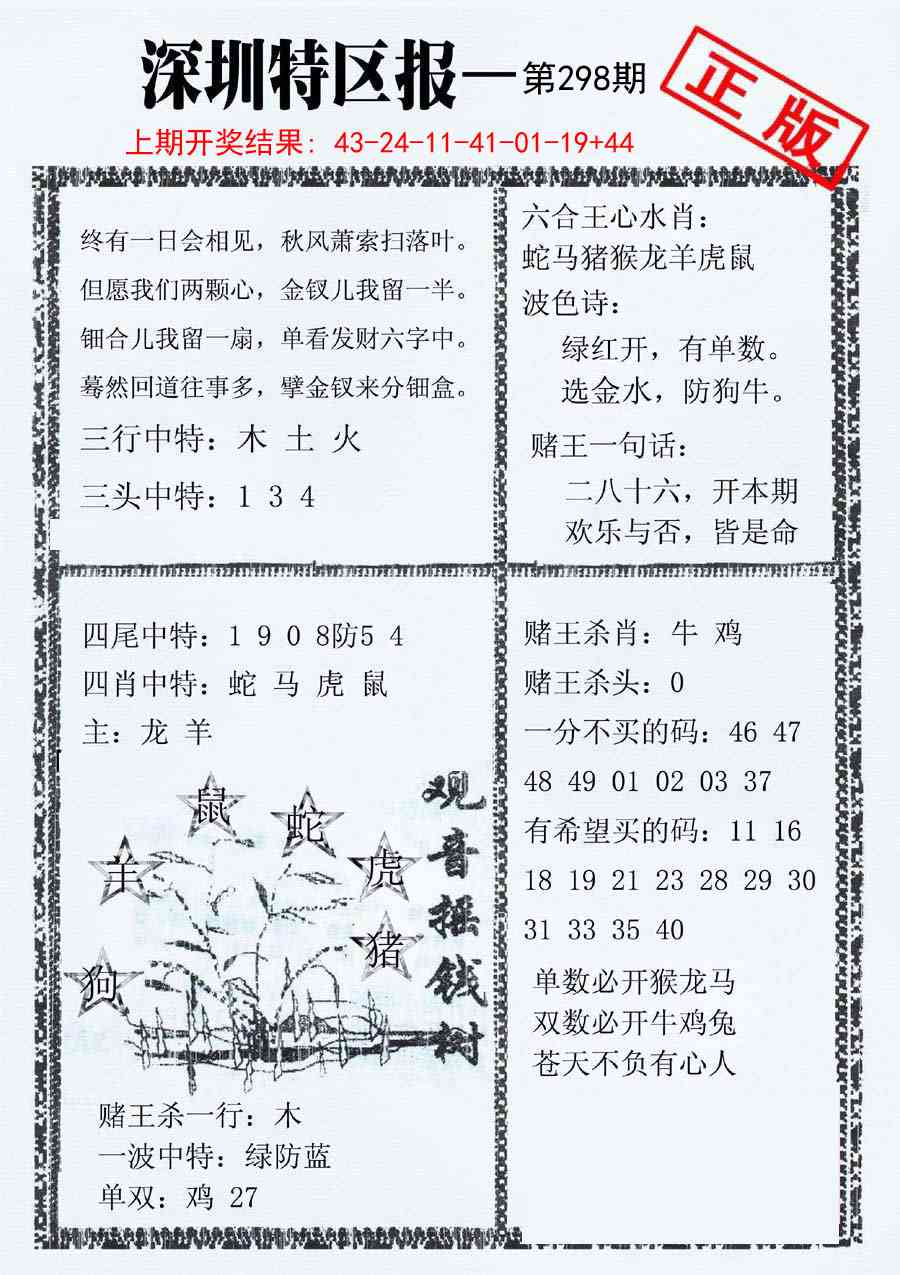 深圳特区报—第298期
正版
上期开奖结果：43-24-11-41-01-19+44
终有一日会相见，秋风萧索扫落叶。
但愿我们两颗心，金钗儿我留一半。
钿合儿我留一扇，单看发财六字中。
蓦然回道往事多，擘金钗来分钿盒。
三行中特：木 土 火
三头中特：1 3 4
六合王心水肖：
蛇马猪猴龙羊虎鼠
波色诗：
绿红开，有单数。
选金水，防狗牛。
赌王一句话：
二八十六，开本期
欢乐与否，皆是命
四尾中特：1 9 0 8防5 4
四肖中特：蛇 马 虎 鼠
主：龙 羊
鼠
蛇
羊
虎
猪
狗
观音摇钱树
赌王杀一行：木
一波中特：绿防蓝
单双：鸡 27
赌王杀肖：牛 鸡
赌王杀头：0
一分不买的码：46 47
48 49 01 02 03 37
有希望买的码：11 16
18 19 21 23 28 29 30
31 33 35 40
单数必开猴龙马
双数必开牛鸡兔
苍天不负有心人